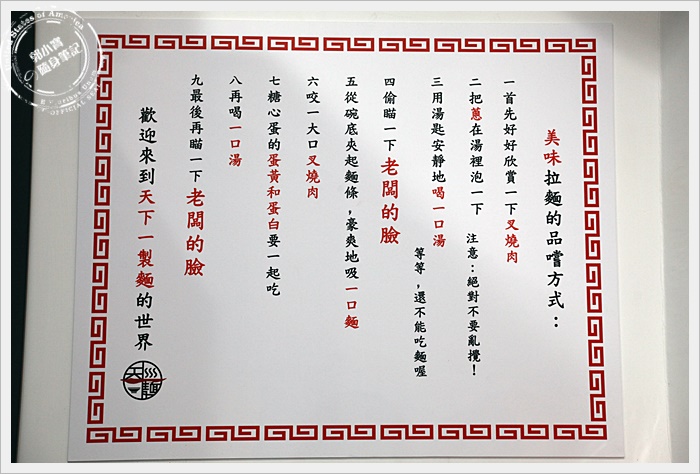 美味拉麵的品嚐方式：
一首先好好欣賞一下叉燒肉
二把蔥在湯裡泡一下 注意：絕對不要亂攪！
三用湯匙安靜地喝一口湯
等等，還不能吃麵喔
四偷瞄一下老闆的臉
五從碗底夾起麵條，豪爽地吸一口麵
六咬一大口叉燒肉
七糖心蛋的蛋黃和蛋白要一起吃
八再喝一口湯
九最後再瞄一下老闆的臉
歡迎來到天下一製麵的世界
郭小寶
隨身筆記